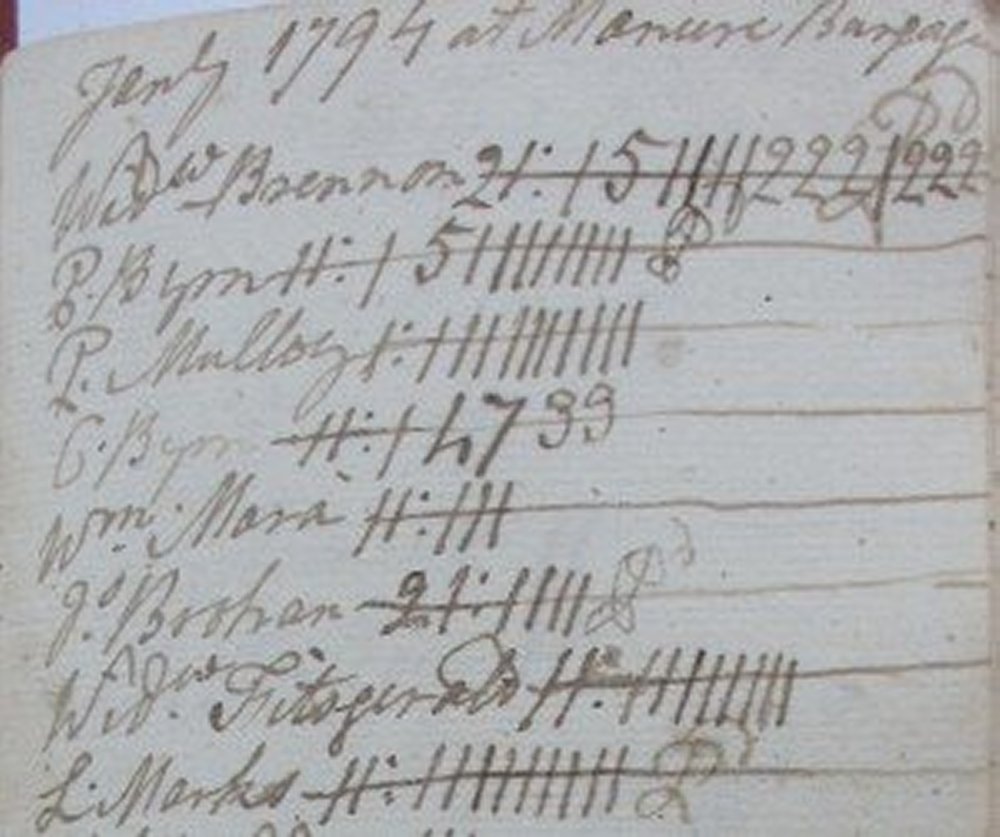 Jany 1794 at Manure Bargage
Widw Brennan 21: / 5 ||||| 222 / 222 Pd
P. Byrn 11: / 5 ||||||||| Pd
P. Mulloy 1: |||||||||||
C. Byrn 11: / 4 7 3 3
Wm. Mara 11: |||
Js Brohan 21: ||||| Pd
Widw. Fitsgerald 11: |||||||||
L. Marks 11: |||||||||| Pd